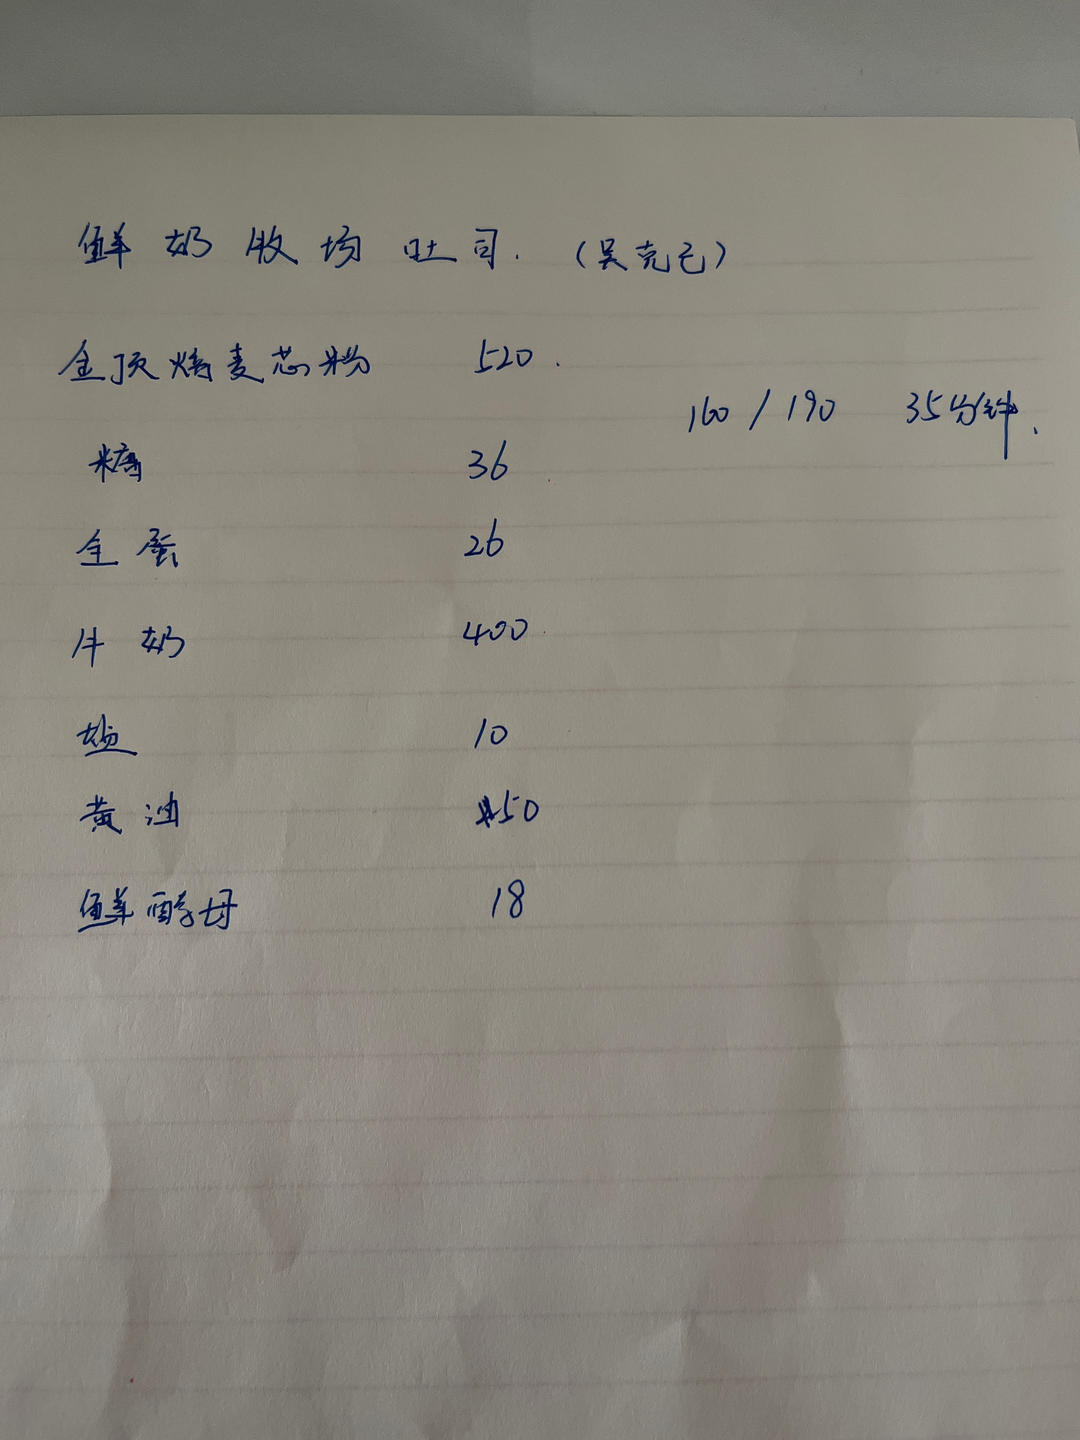 鲜奶牧场吐司.（吴克己）
金顶焙麦芯粉 520.
160/190 35分钟.
糖 36
全蛋 26
牛奶 400
盐 10
黄油 50
鲜酵母 18